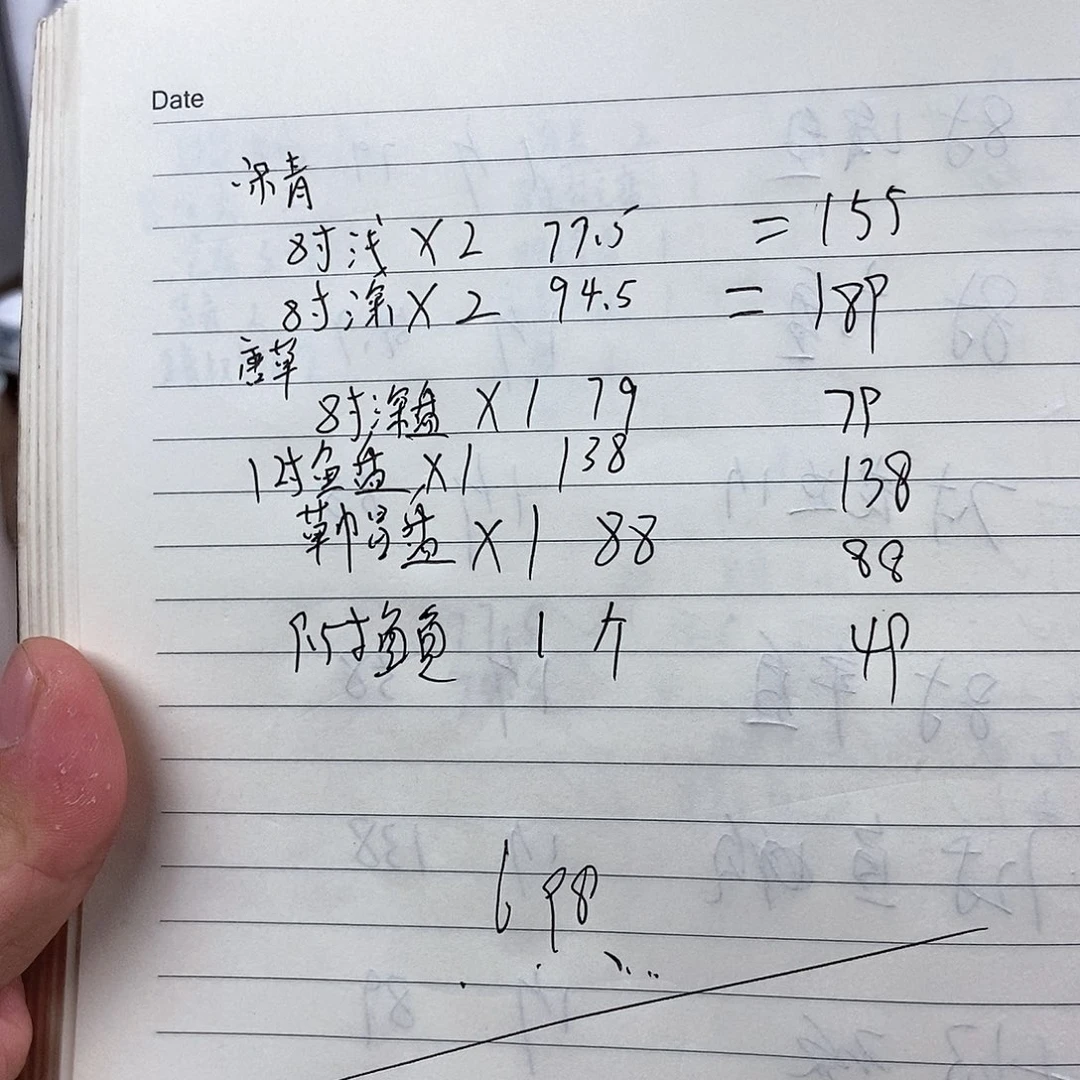 Date
深青
8寸浅 X 2 77.5 = 155
8寸深 X 2 94.5 = 189
唐草
8寸深盘 X 1 79 79
12寸鱼盘 X 1 138 138
盘 X 1 88 88
寸 1 个 49
698